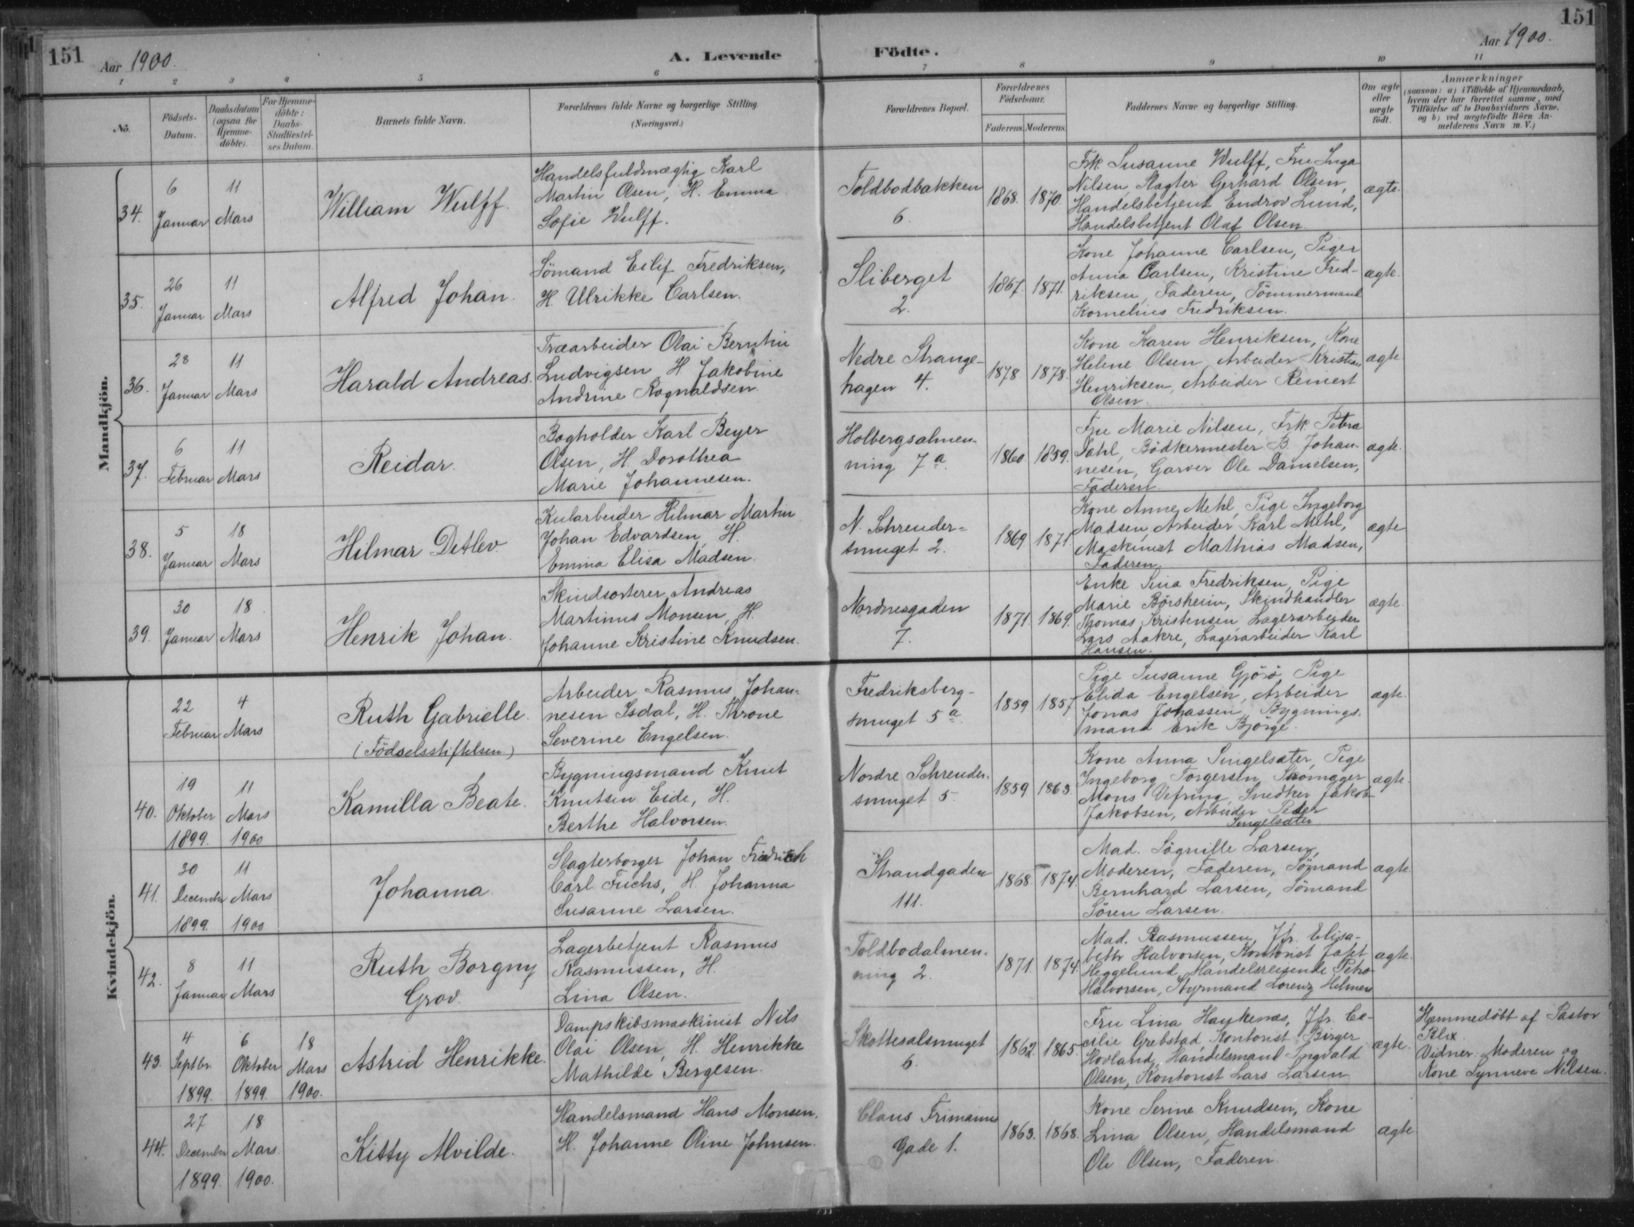 151 Aar 1900. A. Levende Födte. Aar 1900. 151
1 2 3 4 5 6 7 8 9 10 11
No. Födsels-Datum. Daabsdatum (ogsaa for Hjemme-döbte). For Hjemme-döbte: Daabs-Stadfæstel-ses Datum. Barnets fulde Navn. Forældrenes fulde Navne og borgerlige Stilling. (Næringsvei.) Forældrenes Bopæl. Forældrenes Födselsaar. Faderens. Moderens. Faddernes Navne og borgerlige Stilling. Om ægte eller uægte födt. Anmærkninger (saasom: a) i Tilfælde af Hjemmedaab, hvem der har forrettet samme, med Tilföielse af to Daabsvidners Navne, og b) ved uægtefödte Börn An-melderens Navn m. V.)
Mandkjön.
34. 6 Januar 11 Mars William Wulff.
Handelsfuldmægtig Karl
Martin Olsen, H. Emma
Sofie Wulff.
Toldbodbakken
6.
1868. 1870.
Frk Susanne Wulff, Fru Inga
Nilsen, Slagter Gerhard Olsen,
Handelsbetjent Endrov Lund,
Handelsbetjent Olaf Olsen
ægte.
35. 26 Januar 11 Mars Alfred Johan.
Sömand Eilif Fredriksen,
H. Ulrikke Carlsen.
Sliberget
2.
1867. 1871.
Kone Johanne Carlsen, Piger
Anna Carlsen, Kristine Fred-
riksen, Faderen, Tömmermand
Kornelius Fredriksen.
ægte.
36. 28 Januar 11 Mars Harald Andreas.
Træarbeider Olai Berntin
Ludvigsen H Jakobine
Andrine Rognaldsen
Nedre Strange-
hagen 4.
1878 1878.
Kone Karen Henriksen, Kone
Helene Olsen, Arbeider Kristian
Henriksen, Arbeider Reinert
Olsen.
ægte
37. 6 Februar 11 Mars Reidar.
Bogholder Karl Beyer
Olsen, H Dorothea
Marie Johannesen.
Holbergsalmen-
ning 7 a.
1860 1859.
Fru Marie Nilsen, Frk Petra
Dahl, Bödkermester B. Johan-
nesen, Garver Ole Danielsen,
Faderen
ægte.
38. 5 Januar 18 Mars Hilmar Detlev
Kularbeider Hilmar Martin
Johan Edvardsen, H.
Emma Elisa Madsen.
N. Schreuder-
smuget 2.
1869 1871
Kone Anne Mehl, Pige Ingeborg
Madsen, Arbeider Karl Mehl,
Maskinist Mathias Madsen,
Faderen.
ægte
39. 30 Januar 18 Mars Henrik Johan.
Skindsorterer Andreas
Martinus Monsen, H.
Johanne Kristine Knudsen.
Nordnesgaden
7.
1871. 1869.
Enke Sina Fredriksen, Pige
Marie Börsheim, Skindhandler
Thomas Kristensen, Lagerarbeider
Lars Aakre, Lagerarbeider Karl
Hansen.
ægte.
Kvindekjön.
22 Februar 4 Mars Ruth Gabrielle.
(Födselsstiftelsen)
Arbeider Rasmus Johan-
nesen Isdal, H. Throne
Severine Engelsen.
Fredriksberg-
smuget 5 a.
1859 1857.
Pige Susanne Gjörö, Pige
Elida Engelsen, Arbeider
Jonas Johassen, Bygnings-
mand Erik Bjørge.
ægte.
40. 19 Oktober 1899. 11 Mars 1900 Kamilla Beate.
Bygningsmand Knut
Knutsen Eide, H.
Berthe Halvorsen.
Nordre Schreuder-
smuget 5.
1859 1863
Kone Anna Singelsæter, Pige
Ingeborg Torgersen, Skomager
Mons Vefring, Snedker Jakob
Jakobsen, Arbeider Peder
Singelsæter
ægte.
41. 30 December 1899. 11 Mars 1900 Johanna
Slagterborger Johan Fredrich
Carl Fuchs, H Johanna
Susanne Larsen.
Strandgaden
111.
1868. 1874.
Mad. Larsen,
Moderen, Faderen, Sømand
Bernhard Larsen, Sömand
Sören Larsen.
ægte.
42. 8 Januar 11 Mars Ruth Borgny
Grov.
Lagerbetjent Rasmus
Rasmussen, H.
Lina Olsen.
Toldbodalmen-
ning 2.
1871. 1874.
Mad. Rasmussen, Jfr. Elisa-
beth Halvorsen, Kontorist
Heggelund, Handelsreisende
Halvorsen, Styrmand Lorenz Hilmer
ægte.
43. 4 Septbr. 1899. 6 Oktober 1899. 18 Mars 1900. Astrid Henrikke.
Dampskibsmaskinist Nils
Olai Olsen, H. Henrikke
Mathilde Bergesen.
Skottesalsmuget
6.
1862. 1865.
Fru Lina Haukenæs, Jfr. Ce-
cilie Grebstad, Kontorist Birger
Hovland, Handelsmand Torvald
Olsen, Kontorist Lars Larsen
ægte.
Hjemmedöbt af Pastor
Blix
Vidner: Moderen og
Kone Synneve Nilsen.
44. 27 December 1899. 18 Mars 1900. Kitty Alvilde.
Handelsmand Hans Monsen.
H. Johanne Oline Johnsen.
Claus Frimanns
Gade 1.
1863. 1868.
Kone Serine Knudsen, Kone
Lina Olsen, Handelsmand
Ole Olsen, Faderen
ægte